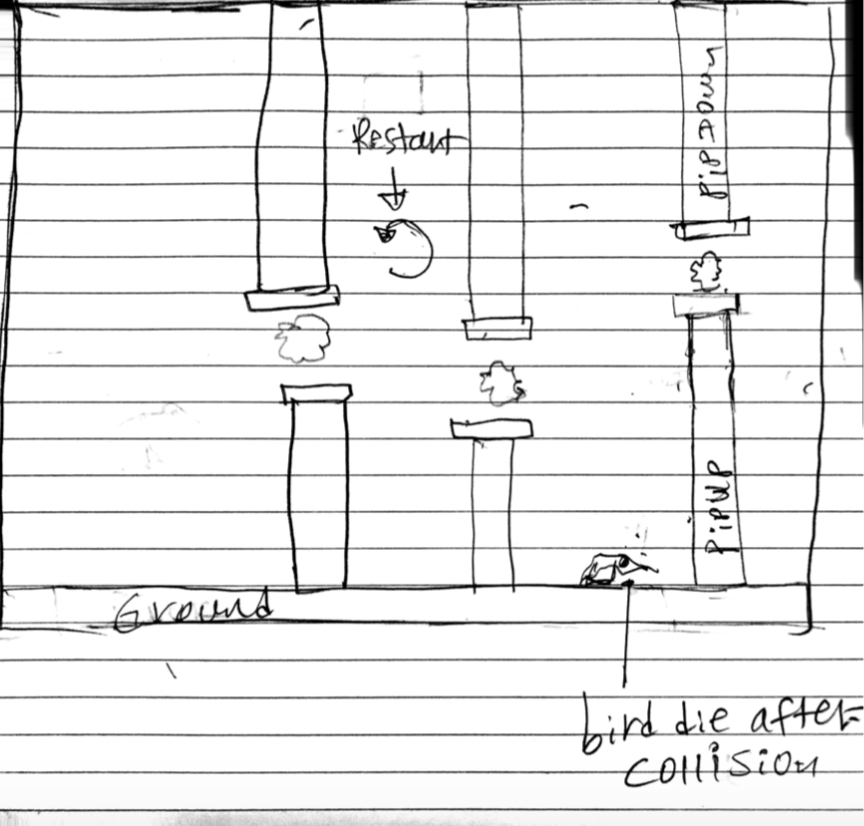 Restart
PiPDown
PiPUP
Ground
bird die after
collision